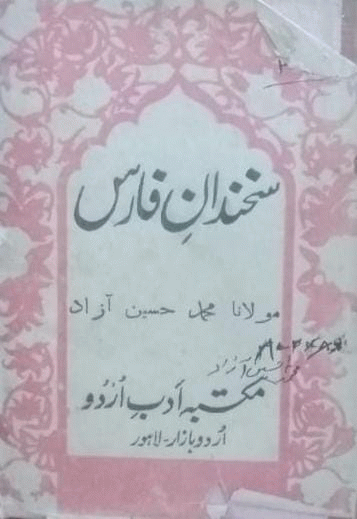 سخندانِ فارس
مولانا محمد حسین آزاد
محمد حسین آزاد
مکتبہ ادبِ اُردُو
اُردو بازار - لاہور